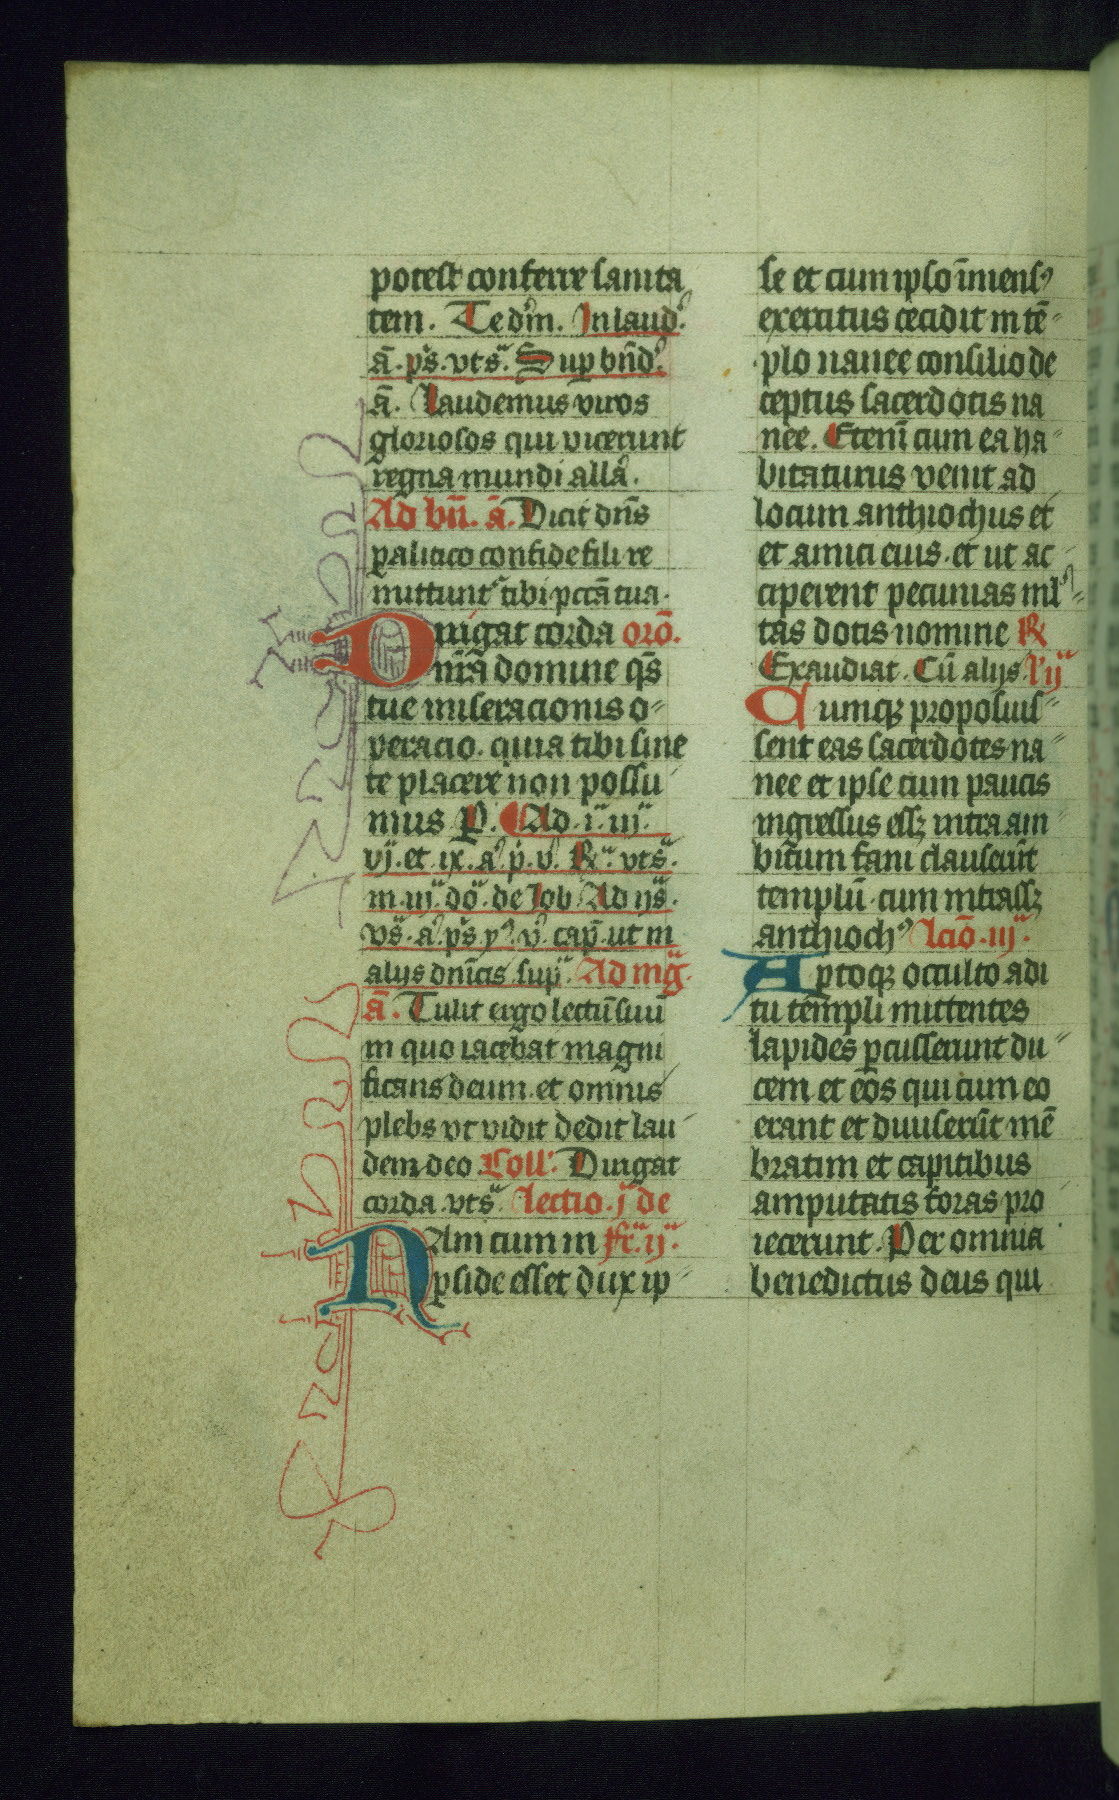 potest conferre sanita
tem. Te dm̄. In laud᾽.
ā. p̄s. vt sᵃ. Sup bn̄d᾽.
ā. Laudemus viros
gloriosos qui vicerunt
regna mundi allā.
Ad bn̄. ā. Dicit dn̄s
palitico confide fili re
mittunt᾽ tibi pctā tua.
Dirigat corda orō.
nr̄a domine qs̄
tue miseracionis o⸗
peracio. quia tibi sine
te placere non possu
mus P. Ad .iᵃ. iijᵃ.
vjᵃ. et ix. a᾽. p̄. v᾽. Rᵃ. vt sᵃ.
in iijᵃ. doᵃ. de Job Ad ijᵃˢ.
vs̄. a᾽. p̄s. y᾽. v᾽. cap̄. ut in
alijs dn̄icis supᵃ. Ad mḡ.
ā. Tulit ergo lectū suū
in quo iacebat magni
ficans deum. et omnis
plebs vt vidit dedit lau
dem deo. Coll᾽. Dirigat
corda. vt sᵃ. lectio .jᵃ de
Nam cum in fr̄. ijᵃ.
pside esset dux ip⸗
se et cum ipso īmens᾽
exercitus cecidit in tē⸗
plo nanee consilio de
ceptus sacerdotis na
nee. Etenī cum ea ha⸗
bitaturus venit ad
locum anthiochus et
et amici eius. et ut ac⸗
ciperent pecunias ml᾽⸗
tas dotis nomine R
Exaudiat. Cū alijs. l᾽ ijᵃ
Cumqꝫ proposuis⸗
sent eas sacerdotes na⸗
nee et ipse cum paucis
ingressus essꝫ intra am⸗
bitum fani clauserūt
templū. cum intrassꝫ
anthioch᾽ Lcō .iijᵃ.
Aptoqꝫ occulto adi
tu templi mittentes
lapides pcusserunt du⸗
cem et eos qui cum eo
erant et diuiserūt mē
bratim et capitibus
amputatis foras pro
iecerunt. Per omnia
benedictus deus qui